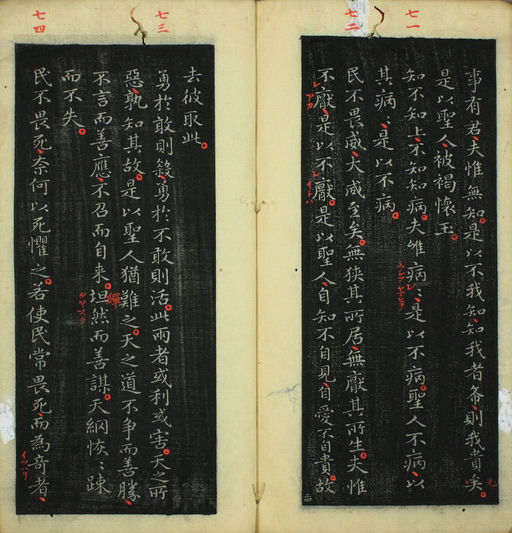 七一
七二
事有君夫惟無知是以不我知知我者希則我貴矣
是以聖人被褐懷玉
知不知上不知知病夫唯病〻是以不病聖人不病以
其病〻是以不病
民不畏威大威至矣無狹其所居無厭其所生夫惟
不厭是以不厭是以聖人自知不自見自愛不自貴故
七三
七四
去彼取此
勇於敢則殺勇於不敢則活此兩者或利或害天之所
惡孰知其故是以聖人猶難之天之道不争而善勝
不言而善應不召而自来坦然而善謀天網恢〻踈
繟
而不失
民不畏死奈何以死懼之若使民常畏死而為奇者